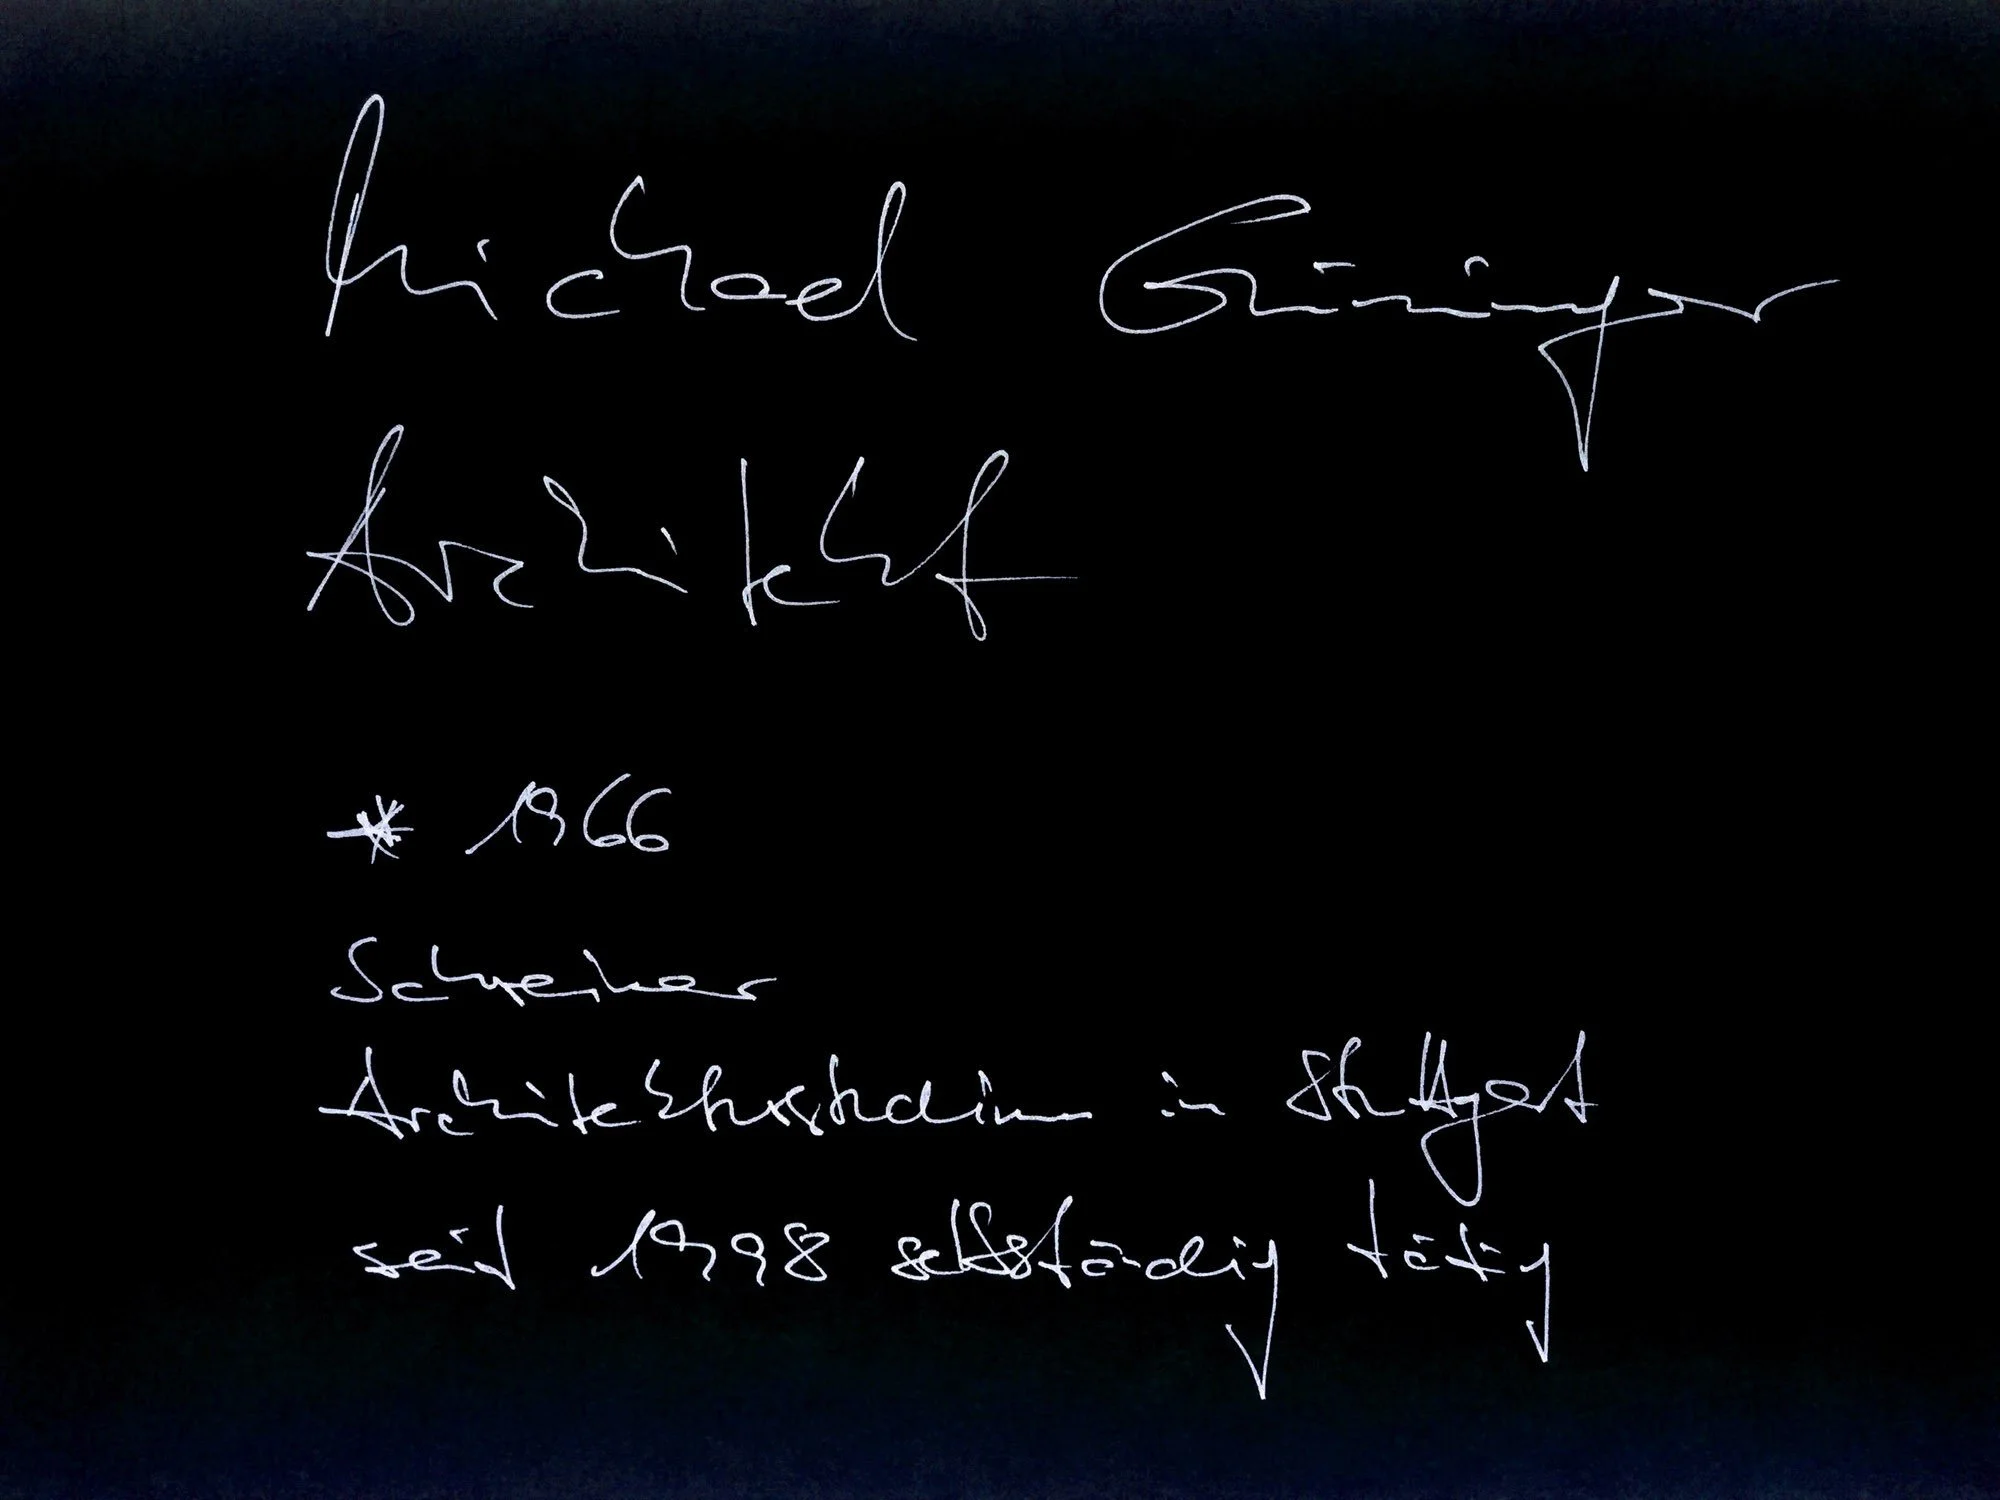 Michael Grüninger
Architekt
* 1966
Schreiner
Architekturstudium in Stuttgart
seit 1998 selbständig tätig